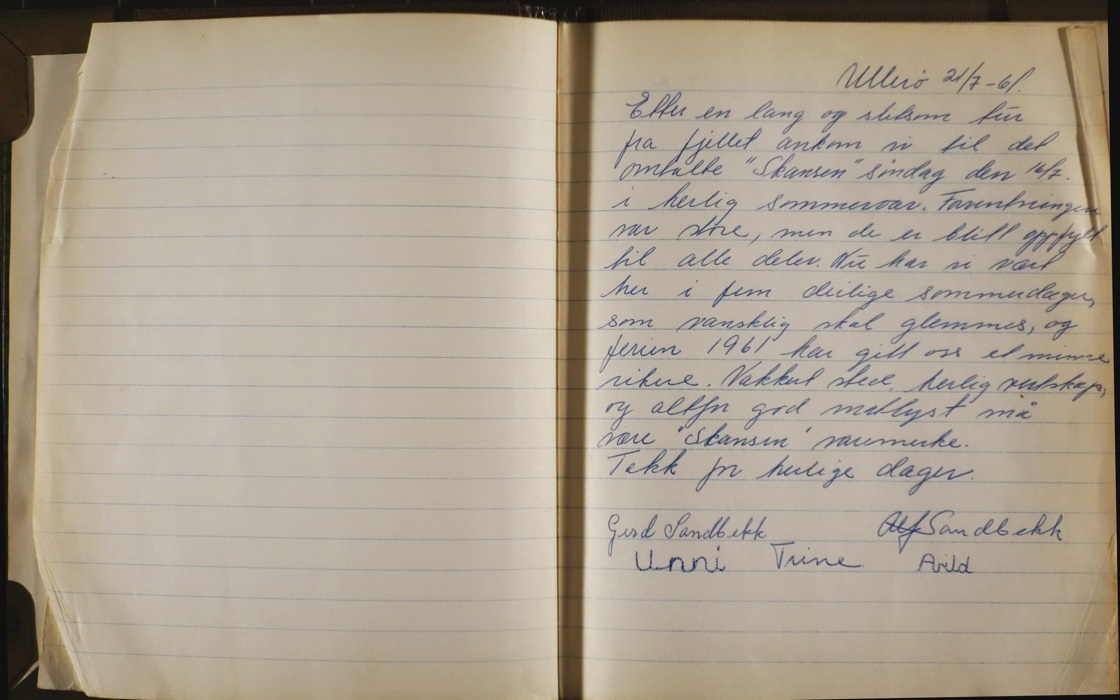 Ullerø 21/7-61.
Etter en lang og slitsom tur
fra fjellet ankom vi til det
omtalte "Skansen" søndag den 16/7.
i herlig sommervær. Forventningen
var store, men de er blitt oppfylt
til alle deler. Nu har vi vært
her i fem deilige sommerdager,
som vanskelig skal glemmes, og
ferien 1961 har gitt oss et minne
rikere. Vakkert sted, herlig vertskap,
og altfor god matlyst må
være "Skansen" varemerke.
Takk for herlige dager.
Gerd Sandbekk Alf Sandbekk
Unni Trine Arild